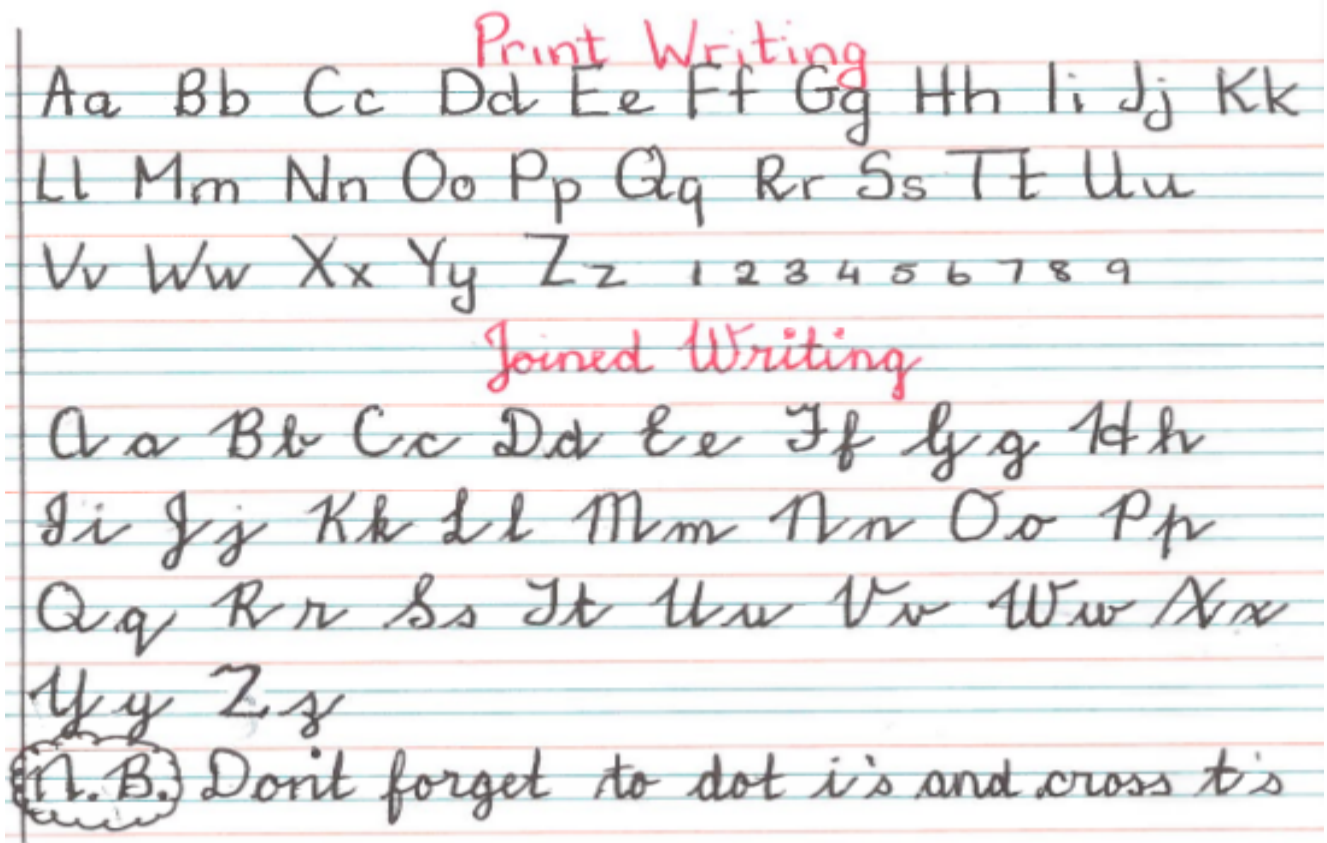 Print Writing
Aa Bb Cc Dd Ee Ff Gg Hh Ii Jj Kk
Ll Mm Nn Oo Pp Qq Rr Ss Tt Uu
Vv Ww Xx Yy Zz 1 2 3 4 5 6 7 8 9
Joined Writing
A a Bb Cc Dd Ee Ff Gg Hh
Ii Jj Kk Ll Mm Nn Oo Pp
Qq Rr Ss Tt Uu Vv Ww Xx
Yy Zz
N.B. Don't forget to dot i's and cross t's